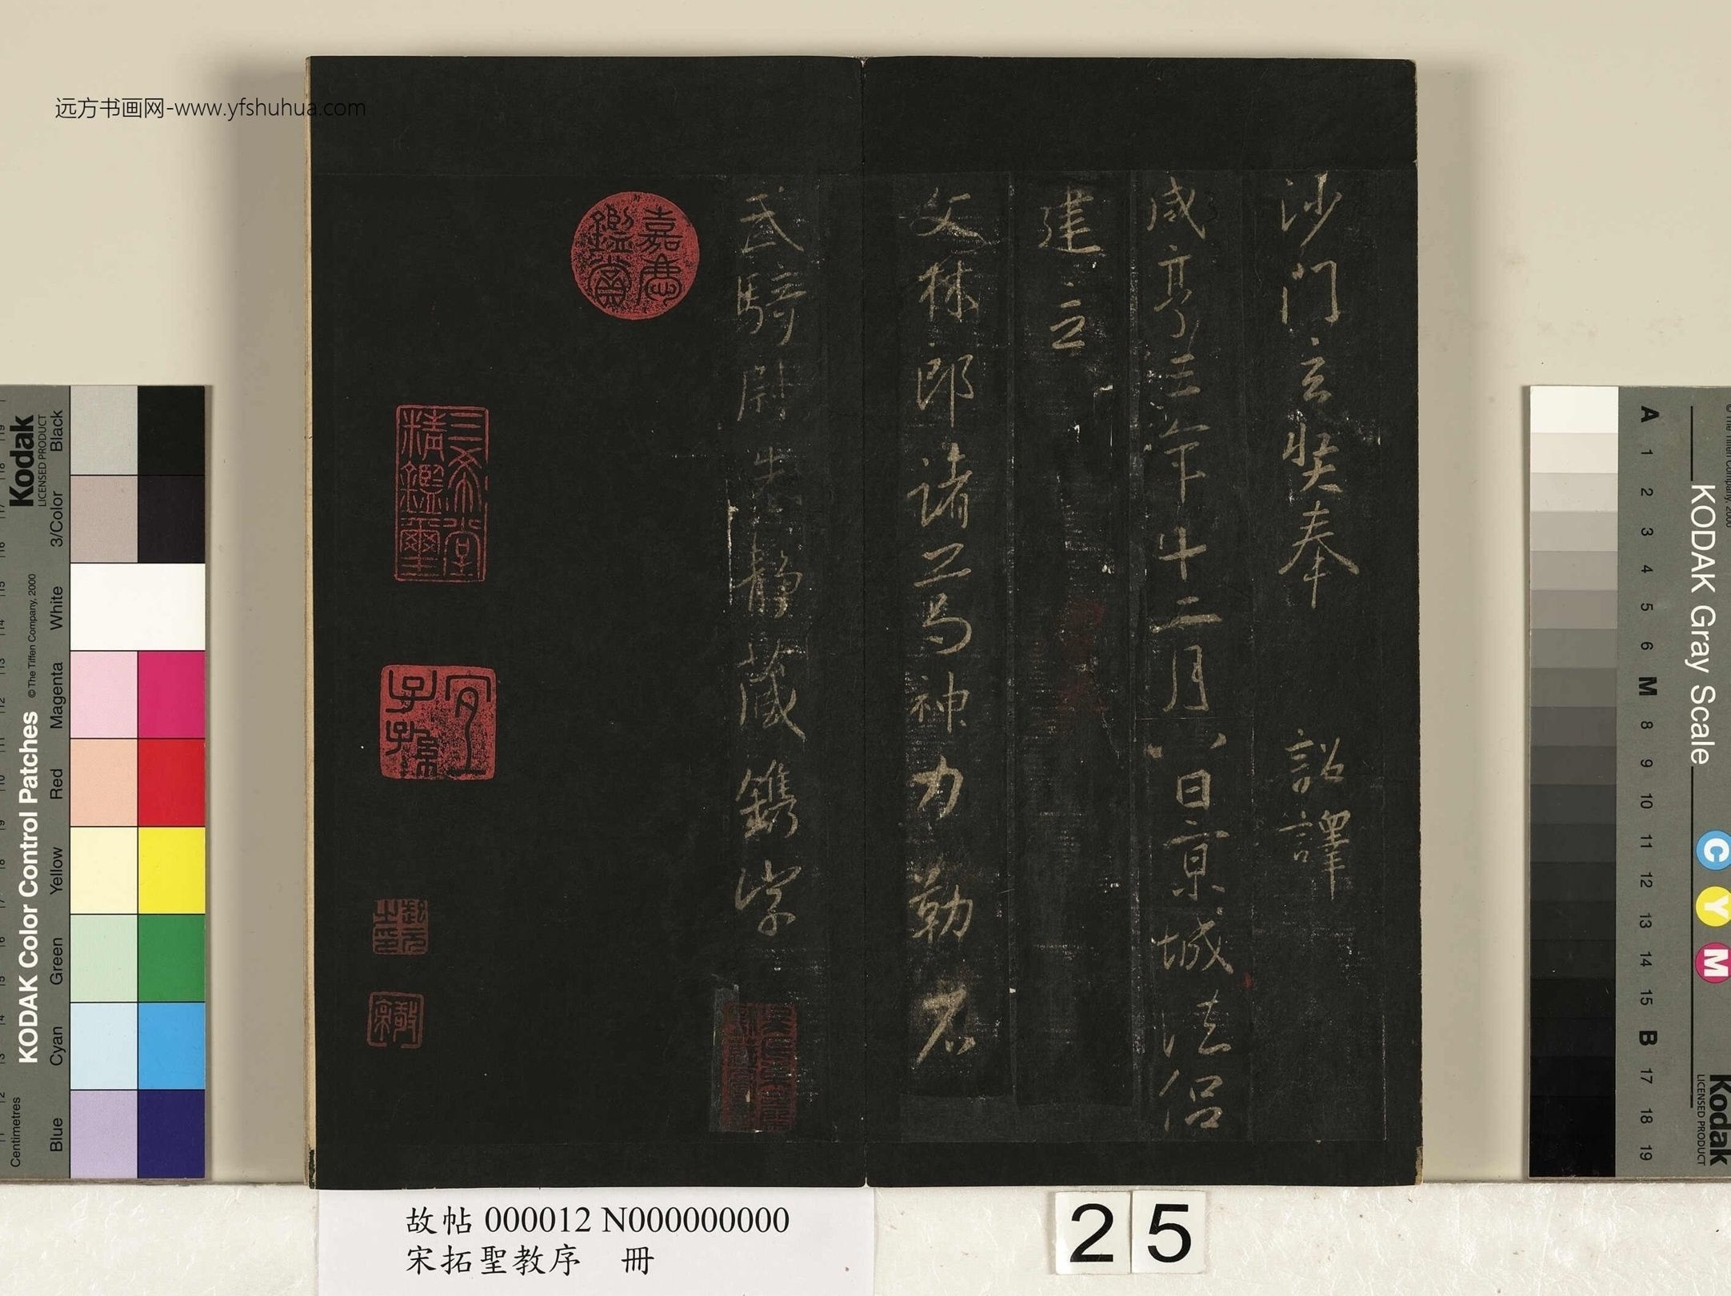 沙门玄奘奉 詔譯
咸亨三年十二月八日京城法侣
建立
文林郎諸葛神力勒石
武騎尉朱静藏鐫字
嘉慶鑑賞
三希堂精鑑璽
宜子孫
远方书画网-www.yfshuhua.com
故帖 000012 N000000000
宋拓聖教序 冊
25
Kodak
LICENSED PRODUCT
KODAK Color Control Patches
© The Tiffen Company, 2000
Centimetres
Black
3/Color
White
Magenta
Red
Yellow
Green
Cyan
Blue
KODAK Gray Scale
A 1 2 3 4 5 6 M 8 9 10 11 12 13 14 15 B 17 18 19
C
Y
M
Kodak
LICENSED PRODUCT